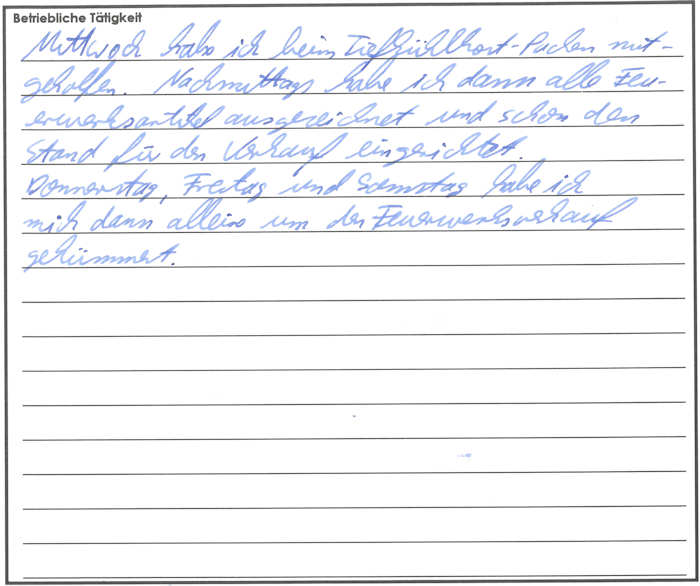 Betriebliche Tätigkeit
Mittwoch habe ich beim Tiefkühlkost-Packen mit-
geholfen. Nachmittags habe ich dann alle Feu-
erwerksartikel ausgezeichnet und schon den
Stand für den Verkauf eingerichtet.
Donnerstag, Freitag und Samstag habe ich
mich dann allein um den Feuerwerksverkauf
gekümmert.